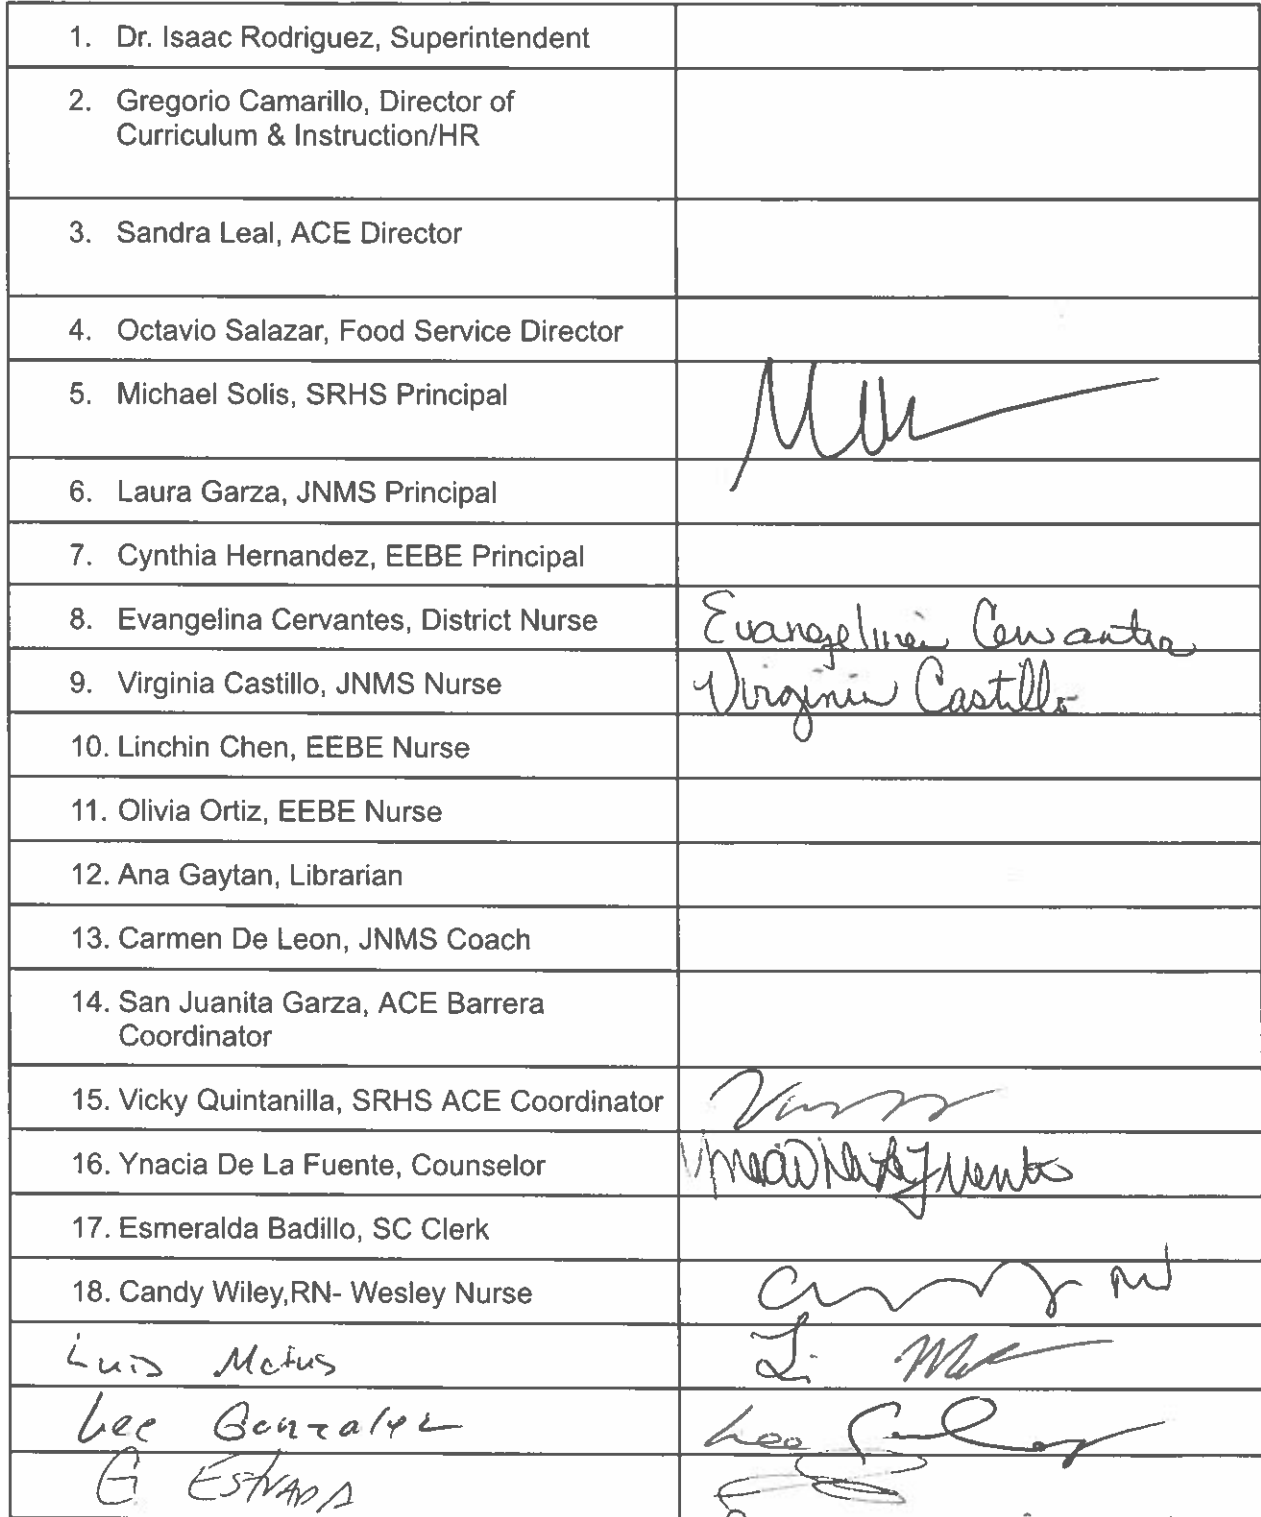 1. Dr. Isaac Rodriguez, Superintendent
2. Gregorio Camarillo, Director of
Curriculum & Instruction/HR
3. Sandra Leal, ACE Director
4. Octavio Salazar, Food Service Director
5. Michael Solis, SRHS Principal
6. Laura Garza, JNMS Principal
7. Cynthia Hernandez, EEBE Principal
8. Evangelina Cervantes, District Nurse Evangelina Cervantes
9. Virginia Castillo, JNMS Nurse Virginia Castillo
10. Linchin Chen, EEBE Nurse
11. Olivia Ortiz, EEBE Nurse
12. Ana Gaytan, Librarian
13. Carmen De Leon, JNMS Coach
14. San Juanita Garza, ACE Barrera
Coordinator
15. Vicky Quintanilla, SRHS ACE Coordinator
16. Ynacia De La Fuente, Counselor Ynacia De La Fuente
17. Esmeralda Badillo, SC Clerk
18. Candy Wiley,RN- Wesley Nurse RN
Luis Matus
Lee Gonzalez Lee
E ESTRADA